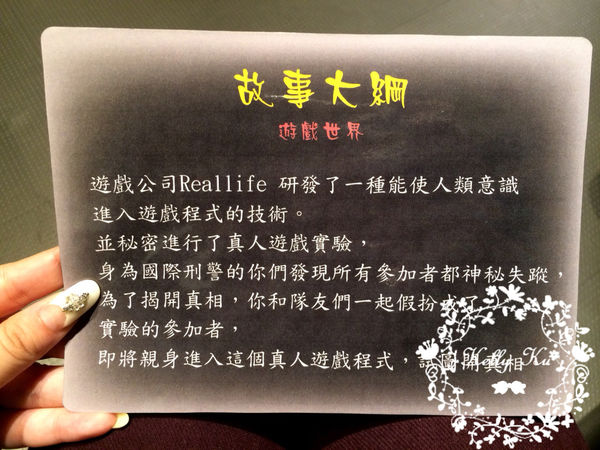 故事大綱
遊戲世界
遊戲公司Reallife 研發了一種能使人類意識
進入遊戲程式的技術。
並秘密進行了真人遊戲實驗，
身為國際刑警的你們發現所有參加者都神秘失蹤，
為了揭開真相，你和隊友們一起假扮成了
實驗的參加者，
即將親身進入這個真人遊戲程式，試圖開真相
Kelly Ku